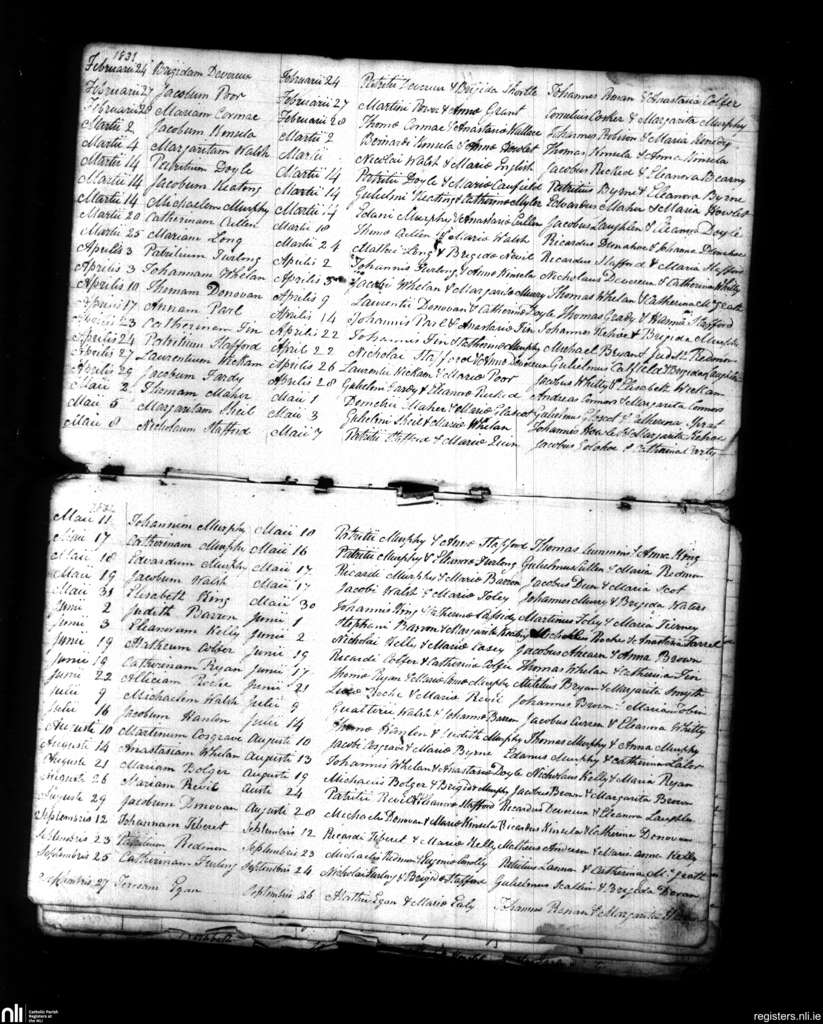 1831
Februarii 24 Brigidam Devereux Februarii 24 Patritii Devereux & Brigida Thortle Johannes Brenan & Anastasia Colfer
Februarii 27 Jacobum Poor Februarii 27 Martini Power & Anna Grant Cornelius Cosker & Margarita Murphy
Februarii 28 Mariam Cormac Februarii 28 Thoma Cormac & Anastasia Wallace Johannes & Maria Kenedy
Martii 2 Jacobum Kinsela Martii 2 Bernardi Kinsela & Anna Howlet Thomas Kinsela & Anna Kinsela
Martii 4 Margaritam Walsh Martii Nicolai Walsh & Maria English Jacobus & Eleanora Bearny
Martii 14 Patritium Doyle Martii 14 Patritii Doyle & Maria Caufield Patritius Byrne & Eleanora Byrne
Martii 14 Jacobum Keating Martii 14 Gulielmi Keating & Catherina Myler Edvardus Maher & Maria Howlet
Martii 14 Michaelem Murphy Martii Edani Murphy & Anastasia Cullen Jacobus Laughlin & Eleanora Doyle
Martii 20 Catherinam Cullen Martii 18 Thoma Cullen & Maria Walsh Ricardus Dunahoe & Johanna
Martii 25 Mariam Long Martii 24 Mathei Long & Brigida Nevil Ricardus Stafford & Maria Stafford
Aprilis 3 Patritium Furlong Aprilis 2 Johannis Furlong & Anna Kinsela Nicholaus Devereux & Catherina Whitty
Aprilis 3 Johannam Whelan Aprilis 3 Jacobi Whelan & Margarita Murry Thomas Whelan & Catherina McGrath
Aprilis 10 Thomam Donovan Aprilis 9 Laurentii Donovan & Catherina Doyle Thomas Grady & Hanna Stafford
Aprilis 17 Annam Parl Aprilis 14 Johannis Parl & Anastasia Fin Johannes Kehoe & Brigida Murphy
Aprilis 23 Catherinam Fin Aprilis 22 Johannis Fin & Catherina Murphy Michael Bryan & Judith Redmon
Aprilis 24 Patritium Stafford Aprilis 22 Nicholai Stafford & Anna Devereux Gulielmus Caufield & Brigida Caufield
Aprilis 27 Laurentium Wickam Aprilis 26 Laurentii Wickam & Maria Poor Jacobus Whitty & Elisabeth Wickam
Aprilis 29 Jacobum Fardy Aprilis 28 Gulielmi Fardy & Eleanora Andreas Connors & Margarita Connors
Maii 2 Thomam Maher Maii 1 Demetrii Maher & Maria Gulielmus & Catherina Grant
Maii 5 Margaritam Sheil Maii 3 Gulielmi Sheil & Maria Whelan Johannis Howlet & Margarita Kehoe
Maii 8 Nicholaum Stafford Maii 7 Patritii Stafford & Maria Quin Jacobus & Catherina
Maii 11 Johannem Murphy Maii 10 Patritii Murphy & Anna Stafford Thomas Cummins & Anna King
Maii 17 Catherinam Murphy Maii 16 Patritii Murphy & Eleanora Furlong Gulielmus Cullen & Maria Redmon
Maii 18 Edvardum Murphy Maii 17 Ricardi Murphy & Maria Barron Jacobus Dun & Maria Scot
Maii 19 Jacobum Walsh Maii 17 Jacobi Walsh & Maria Foley Johannes Murry & Brigida Waters
Maii 31 Elisabeth King Maii 30 Johannis King & Catherina Cassidy Martinus Foley & Maria Tierney
Junii 2 Judith Barron Junii 1 Stephani Barron & Margarita Nicholaus Roche & Anastasia Farrel
Junii 3 Eleanoram Kelly Junii 2 Nicholai Kelly & Maria Casey Jacobus Ahearn & Anna Brown
Junii 19 Colfer Junii 19 Ricardi Colfer & Catherina Colfer Thomas Whelan & Catherina Fin
Junii 19 Catherinam Ryan Junii 17 Thoma Ryan & Maria Anna Murphy Mitilus Bryan & Margarita Smyth
Junii 22 Aliciam Roche Junii 21 Luca Roche & Maria Revil Johannes Brown & Mariam Tobin
Julii 9 Michaelem Walsh Julii 9 Gualterii Walsh & Johanna Barron Jacobus Curren & Eleanna Whitty
Julii 16 Jacobum Hanlon Julii 14 Thoma Hanlon & Judith Murphy Thomas Murphy & Anna Murphy
Augusti 10 Martinum Cosgrave Augusti 10 Jacobi Cosgrave & Maria Byrne Edanus Murphy & Catherina Lalor
Augusti 14 Anastasiam Whelan Augusti 13 Johannis Whelan & Anastasia Doyle Nicholaus Kelly & Maria Ryan
Augusti 21 Mariam Bolger Augusti 19 Michaelis Bolger & Brigida Murphy Jacobus Brown & Margarita Brown
Augusti 26 Mariam Revil Augusti 24 Patritii Revil & Eleanna Stafford Ricardus Devereux & Eleanora Laughlin
Augusti 29 Jacobum Donovan Augusti 28 Michaelis Donovan & Maria Kinsela Ricardus Kinsela & Catherina Donovan
Septembris 12 Johannam Teberet Septembris 12 Ricardi Teberet & Maria Kelly Matheus Anderson & Maria Anne Kelly
Septembris 23 Patritium Redmon Septembris 23 Michaelis Redmon & Eugenia Connolly Patritius Lannan & Catherina McGrath
Septembris 25 Catherinam Furlong Septembris 24 Nicholai Furlong & Brigida Stafford Gulielmus Scallan & Brigida Doran
Septembris 27 Teresam Egan Septembris 26 Mathei Egan & Maria Early Johannes Brenan & Margarita
nli Catholic Parish Registers at the NLI
registers.nli.ie